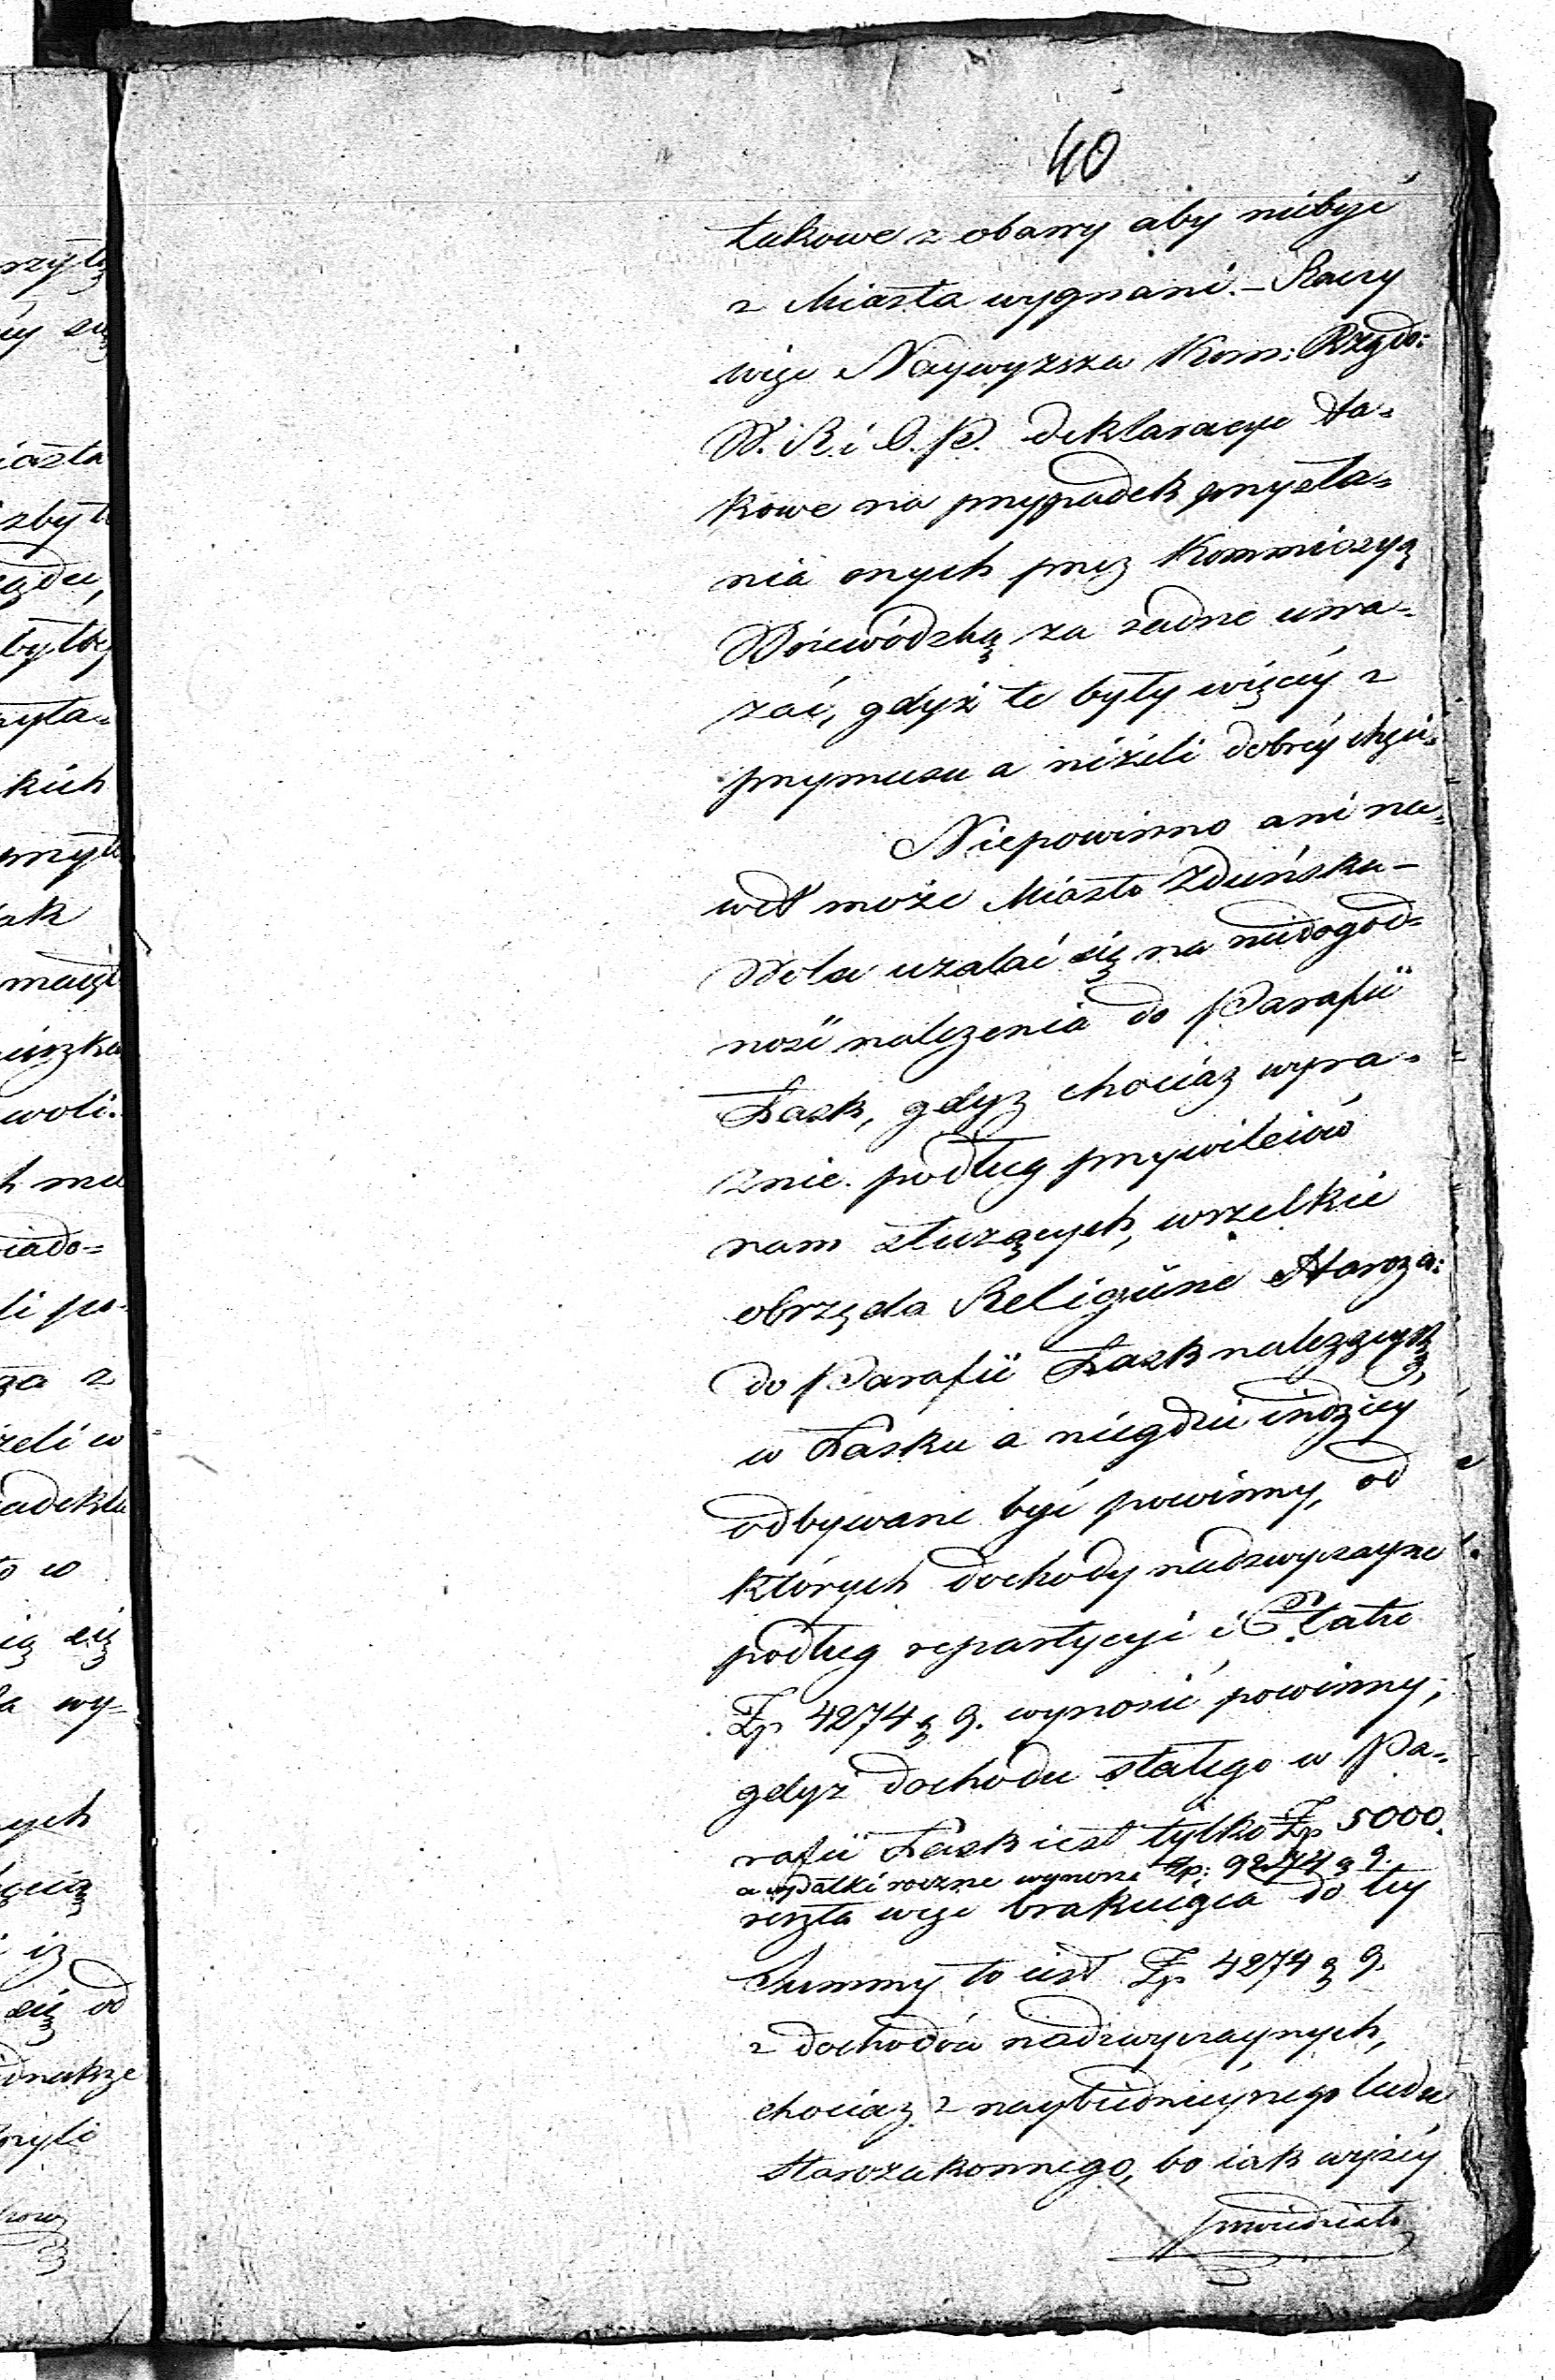 40
takowe z obawy aby niebyć
z Miasta wygnani. – Raczy
więc Naywyzsza Kom: Rządo:
W. R. i O. P. deklaracye ta-
kowe na przypadek przysła-
nia onych przez Kommissyą
Woiewódzką za żadne uwa-
żać, gdyż te były więcéy z
przymusu a niżeli dobréy chęci.
Niepowinno ani na-
wet może Miasto Zduńska-
Wola użalać się na niedogod-
ność należenia do Parafii
Łask, gdyz chociaz wyra-
znie podług przywileiów
nam służących, wszelkie
obrzęda Religiine Staroza:
do Parafii Łask należących
w Łasku a niegdzie indziey
odbywane być powinny, od
których dochody nadzwyczayne
podług repartycyi i Etatu
Zp 4274 g 9. wynosić powinny,
gdyż dochodu stałego w Pa-
rafii Łask iest tylko Zp 5000.
a wydatki roczne wynoszą Zp: 9274 g 9.
reszta więc brakuiąca do tey
Summy to iest Zp 4274 g 9.
z dochodów nadzwyczaynych,
chociaz z naybiednieyszego ludu
starozakonnego, bo iak wyżéy
powiedziało
rzyty
się
iasta
zbyt
byłby
kich
ak
woli.
iado-
li po-
za z
żeli w
w
się
wy-
ych
iz
się od
dnakze